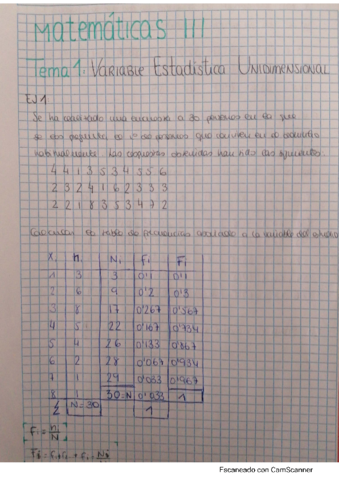 Matemáticas III
Tema 1. Variable Estadística Unidimensional
EJ 1.
Se ha realizado una encuesta a 30 personas en la que
se les pregunta el nº de
habitualmente. Las respuestas obtenidas han sido las siguientes:
4 4 1 3 5 3 4 5 5 6
2 3 2 4 1 6 2 3 3 3
2 2 1 8 3 5 3 4 7 2
la tabla de frecuencias asociada a la variable del
Xi ni Ni fi Fi
1 3 3 0'1 0'1
2 6 9 0'2 0'3
3 8 17 0'267 0'567
4 5 22 0'167 0'734
5 4 26 0'133 0'867
6 2 28 0'067 0'934
7 1 29 0'033 0'967
8 1 30=N 0'033 1
Σ N=30 1
[fi = ni/N]
Escaneado con CamScanner